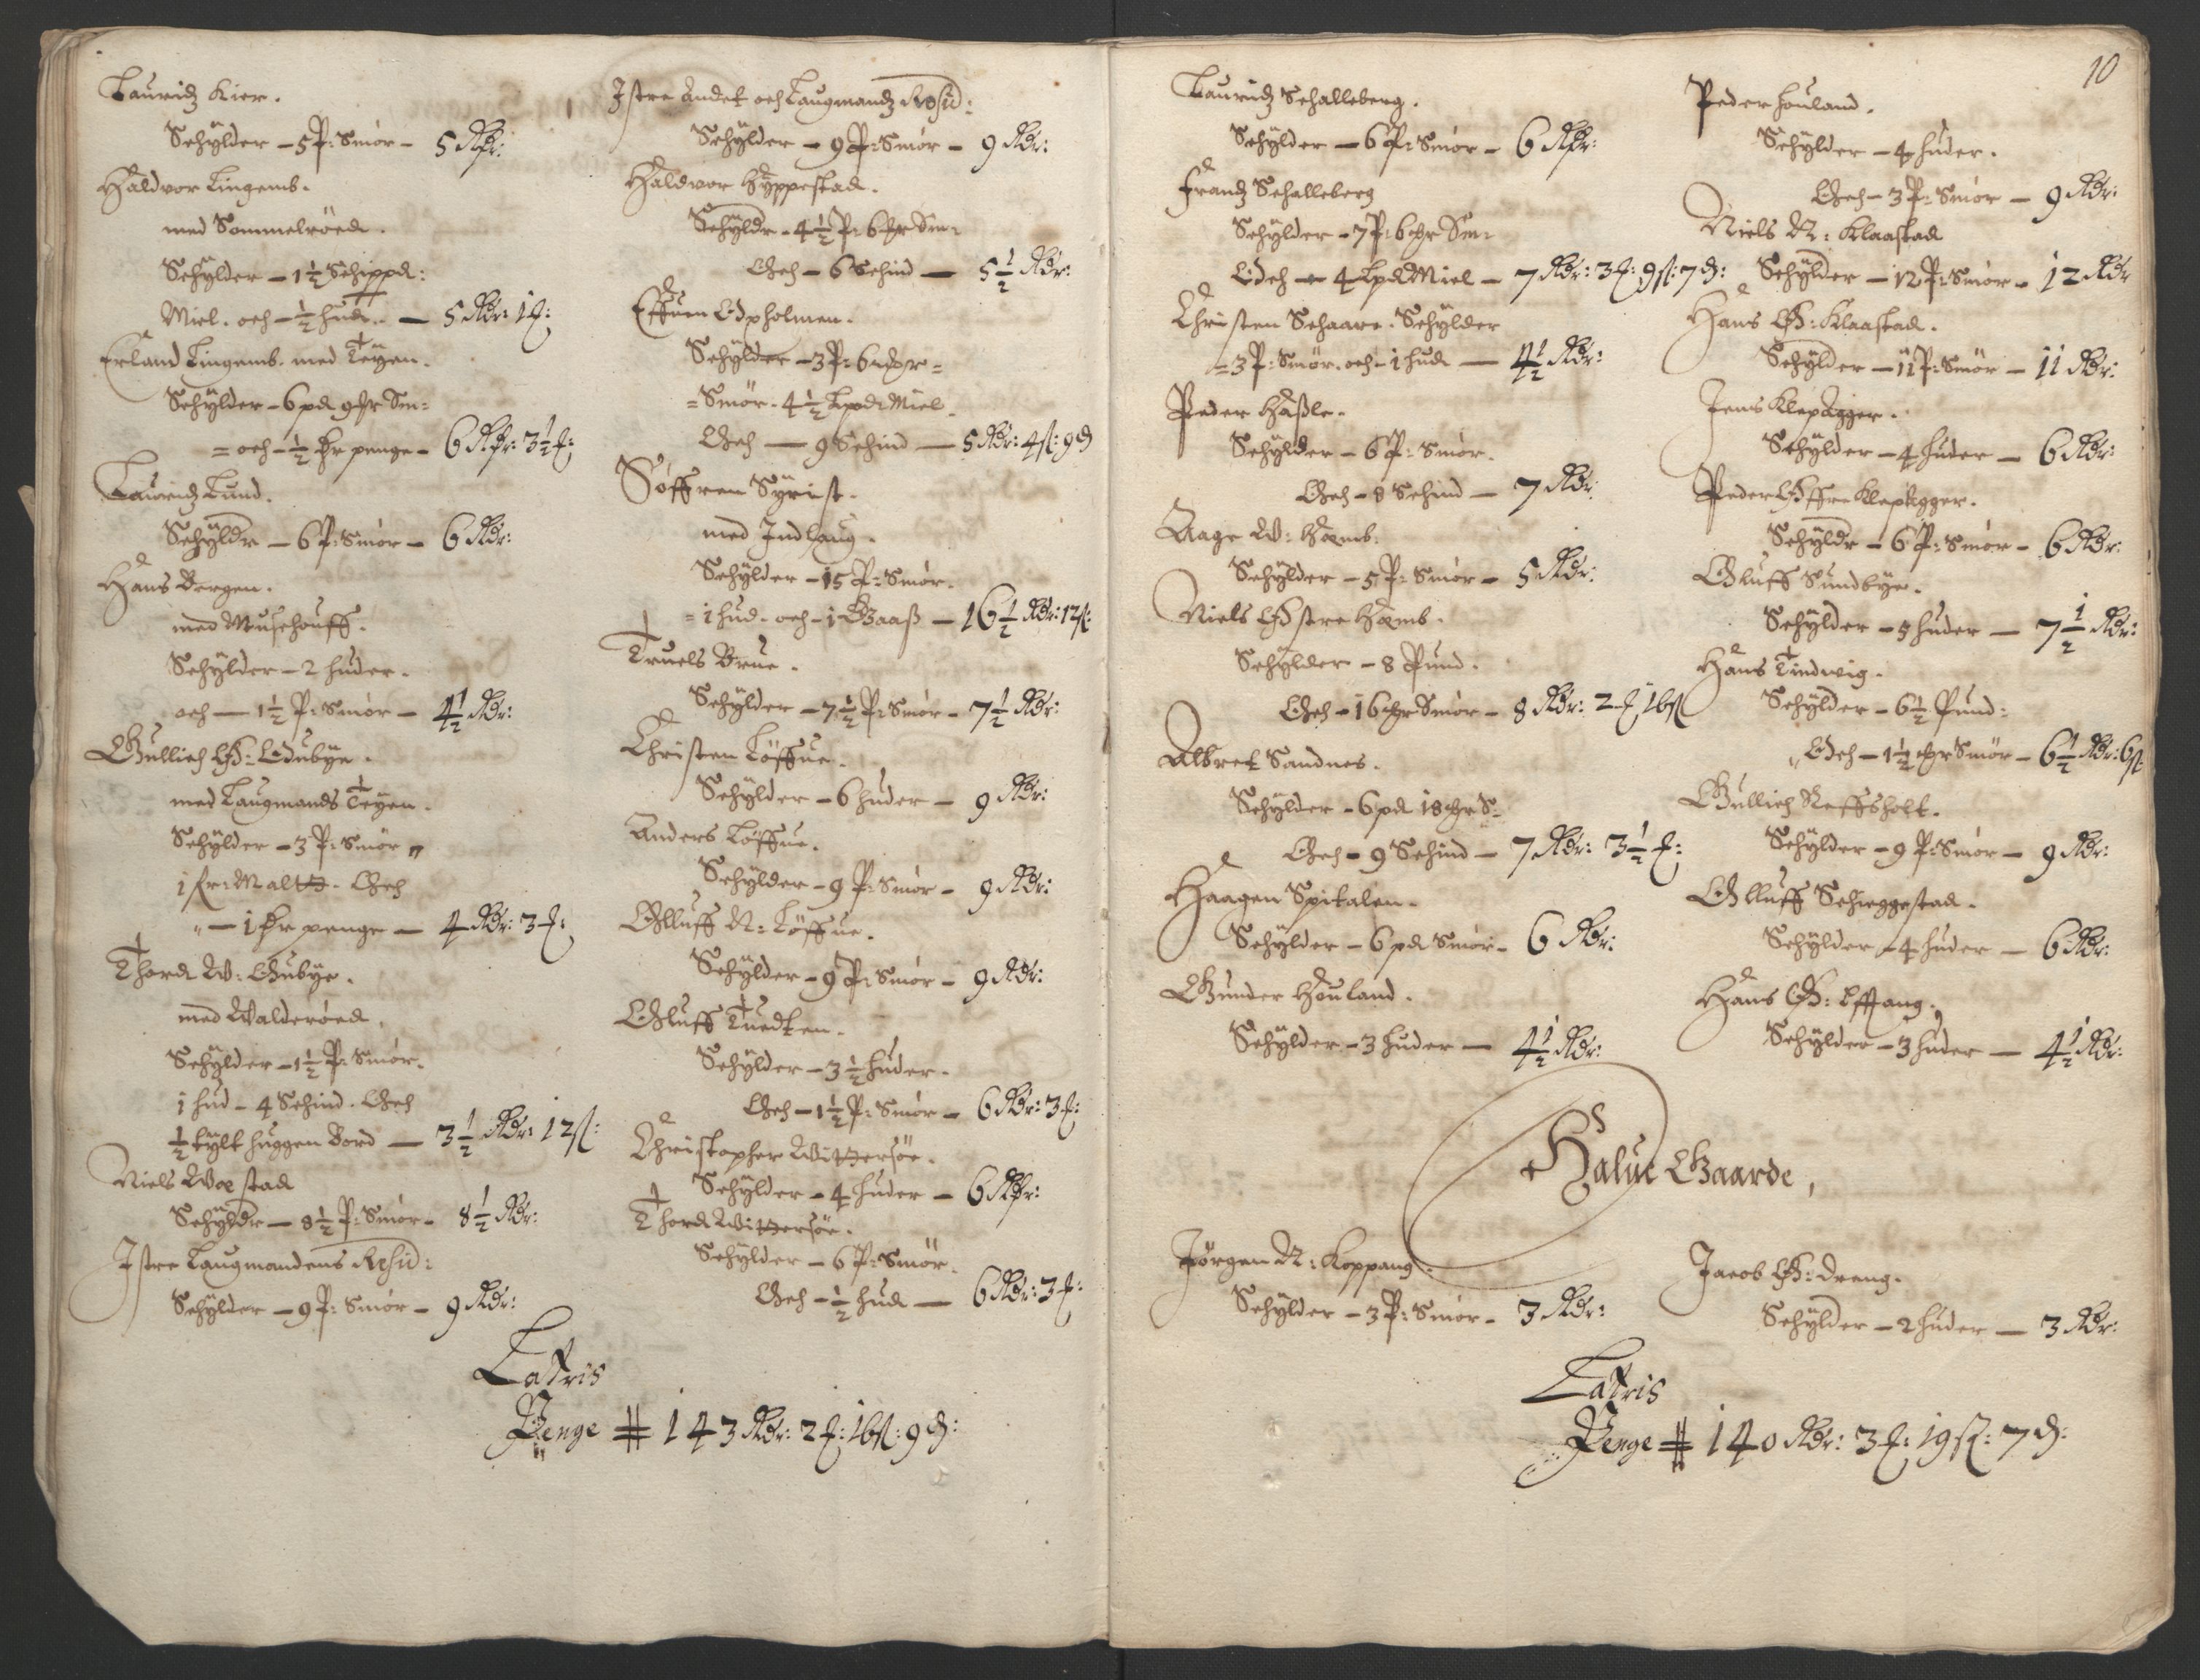 Lauridz Kier.
Schÿlder – 5 P: Smör – 5 Rdr:
Haldvor Lingemb.
med Sommelröed.
Schÿlder – 1½ Schippd:
Miel. och – ½ hud. – 5 Rdr: 1 ƒ:
Erland Lingemb. med Teÿen.
Schÿlder – 6 pd 9 ɱr Sm=
= och – ½ fr penge – 6 Rdr: 3½ ƒ:
Lauridz Lund.
Schÿldr – 6 P: Smör – 6 Rdr:
Hans Bergen.
med Musehouff.
Schÿlder – 2 huder.
och — 1½ P: Smör – 4½ Rdr:
Gullich Ø: Odubÿe.
med Laugmands Teÿen.
Schÿlder – 3 P: Smör „
1 fr: Maltt. Och
„ – 1 fr penge – 4 Rdr: 3 ƒ:
Thord W: Gubÿe.
med Walderöed.
Schÿlder – 1½ P: Smör.
1 hud – 4 Schind. Och
½ tÿlt huggen Bord — 3½ Rdr: 12 ß:
Niels Wæstad
Schÿldr — 8½ P: Smör – 8½ Rdr:
Istre Laugmandens Resid:
Schÿlder – 9 P: Smör – 9 Rdr:
Istre Andet och Laugmandz Resid:
Schÿlder – 9 P: Smör – 9 Rdr:
Haldvor Hÿppestad.
Schÿldr – 4½ P: 6 ɱr Sm:
Och – 6 Schind — 5½ Rdr:
Effuen Odpholmen.
Schÿlder – 3 P: 6 mr =
= Smör. 4½ Lpd: Miel.
Och — 9 Schind — 5 Rdr: 4 ß: 9 d
Söffren Sÿrist.
med Indlaug.
Schÿlder – 15 P: Smör.
= 1 hud. och – 1 Gaaß — 16½ Rdr: 12 ß:
Truels Brue.
Schÿlder – 7½ P: Smör – 7½ Rdr:
Christen Löffue.
Schÿlder – 6 huder – 9 Rdr:
Anders Löffue.
Schÿlder – 9 P: Smör – 9 Rdr:
Olluff N: Löffue.
Schÿlder – 9 P: Smör – 9 Rdr:
Oluff Tuedten.
Schÿlder – 3½ huder.
Och – 1½ P: Smör – 6 Rdr: 3 ƒ:
Christopher Wittersöe.
Schÿlder – 4 huder – 6 Rdr:
Thord Wittersöe.
Schÿlder – 6 P: Smör.
Och – ½ hud — 6 Rdr: 3 ƒ:
Lattris
Penge # 143 Rdr: 2 ƒ: 16 ß: 9 d:
10
Lauridz Schalleberg.
Schÿlder – 6 P: Smör – 6 Rdr:
Frandz Schalleberg
Schÿlder – 7 P: 6 ɱr Sm:
Och – 4 Lpd Miel – 7 Rdr: 3 ƒ: 9 ß: 7 d:
Christen Schaare. Schÿlder
= 3 P: Smör. och – 1 hud — 4½ Rdr:
Peder Haßle.
Schÿlder – 6 P: Smör.
Och – 8 Schind – 7 Rdr.
Aage W: Hæmb.
Schÿlder – 5 P: Smör – 5 Rdr:
Niels Østre Hæmb.
Schÿlder – 8 Pund.
Och – 16 ɱr Smör – 8 Rdr: 2 ƒ 16 ß
Albret Sandnes.
Schÿlder – 6 pd 18 ɱr S=
Och – 9 Schind – 7 Rdr: 3½ ƒ:
Haagen Spitalen.
Schÿlder – 6 pd Smör – 6 Rdr:
Gunder Houland.
Schÿlder – 3 huder — 4½ Rdr:
Peder Houland.
Schÿlder – 4 huder.
Och – 3 P: Smör – 9 Rdr:
Niels N: Klaastad
Schÿlder – 12 P: Smör – 12 Rdr
Hans Ø: Klaastad.
Schÿlder – 11 P: Smör – 11 Rdr:
Jens Klepagger.
Schÿlder – 4 huder – 6 Rdr:
Peder Øffre Klepagger.
Schÿldr – 6 P: Smör – 6 Rdr:
Oluff Sundbÿe.
Schÿlder – 5 huder — 7½ Rdr:
Hans Tindwig.
Schÿlder – 6½ Pund:
„ Och – 1½ ɱr Smör – 6½ Rdr: 6 ß
Gullich Reffsholt.
Schÿlder – 9 P: Smör – 9 Rdr:
Olluff Scheggestad.
Schÿlder – 4 huder – 6 Rdr:
Hans Ø: Efftang.
Schÿlder – 3 huder — 4½ Rdr:
Halue Gaarde,
Jörgen N: Koppang.
Schÿlder – 3 P: Smör – 3 Rdr:
Jacob Ø: Dreng.
Schÿlder – 2 huder — 3 Rdr:
Lattris
Penge # 140 Rdr: 3 ƒ: 19 ß: 7 d: